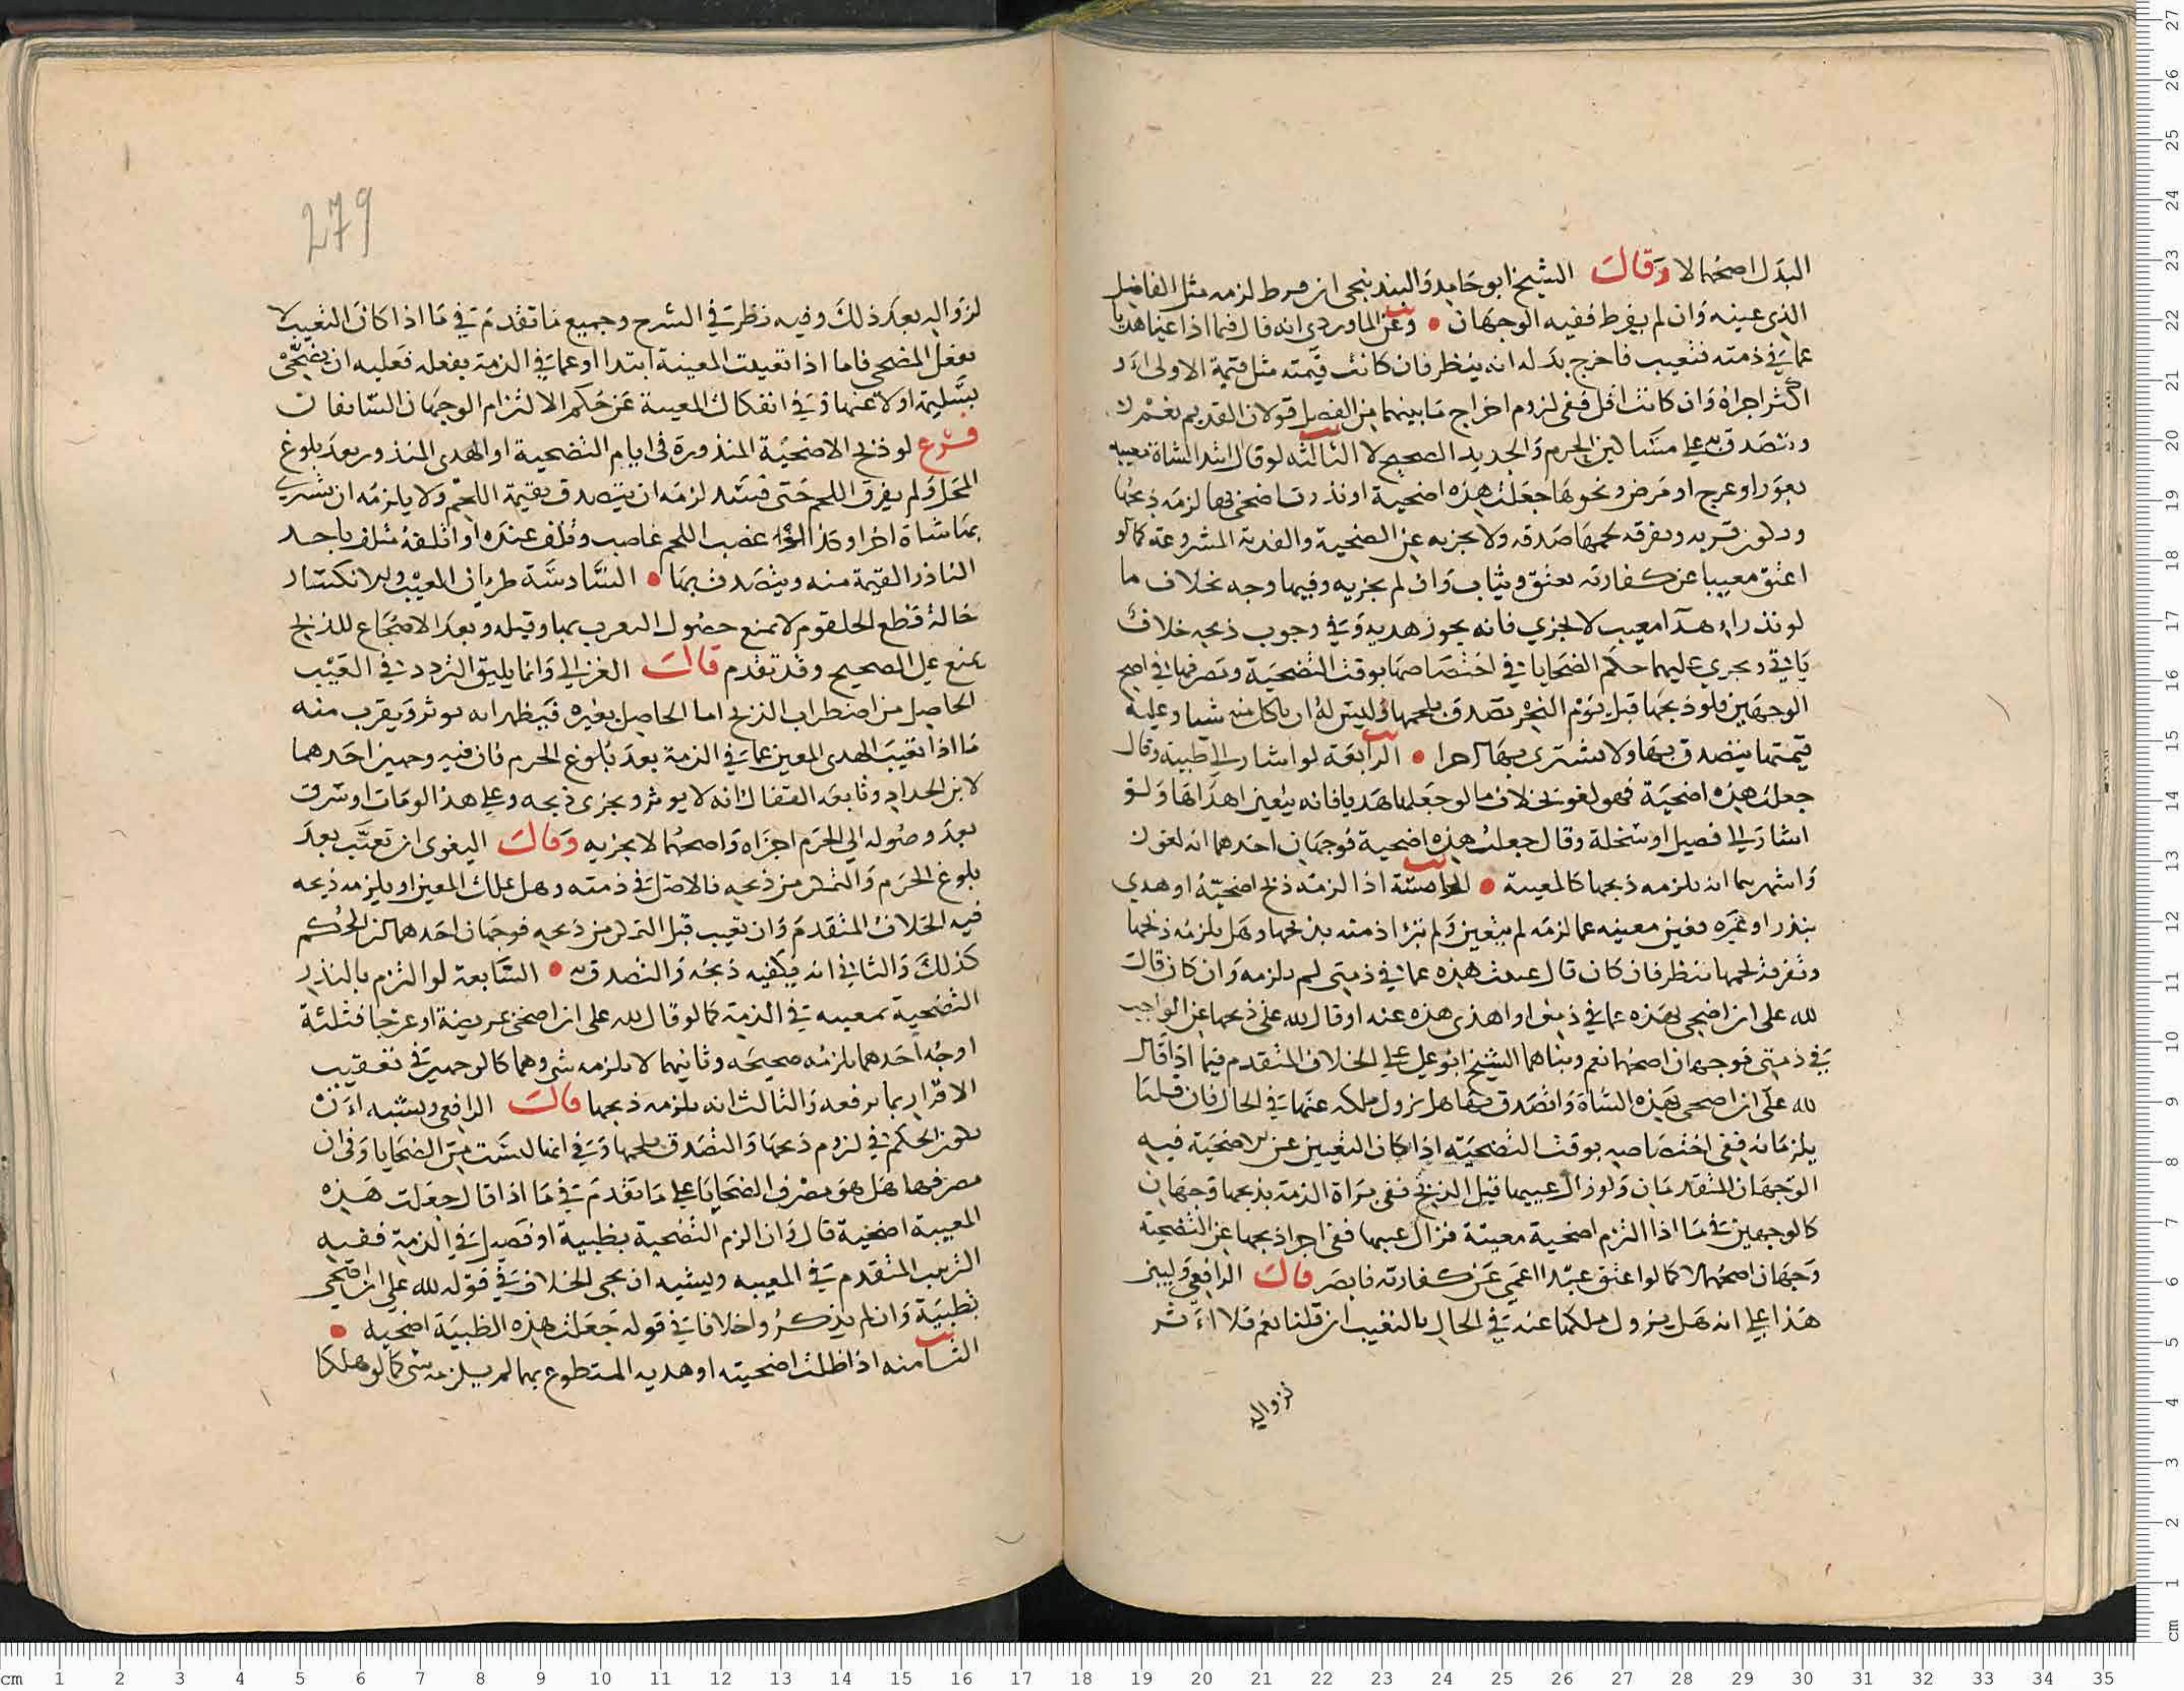 البدل اصحهما لا وقال الشيخ ابو حامد والبندنيجى ان فرط لزمه مثل الفاضل
الذى عينه وان لم يفرط ففيه الوجهان • وعن الماوردى انه قال فيما اذا عينا هديا
عما فى ذمته فتعيب فاخرج بدله انه ينظر فان كانت قيمته مثل قيمة الاولى او
اكثر اجزاه وان كانت اقل ففى لزوم اخراج ما بينهما من الفصل قولان القديم نعم
ويتصدق به على مساكين الحرم والجديد الصحيح لا الثالثه لو قال ابتدا لشاة معيبه
بعور او عرج او مرض ونحوها جعلت هذه اضحية او نذر ان اضحى بها لزمه ذبحها
ويكون قربه وتفرقه لحمها صدقه ولا يجزيه عن الضحية والفدية المشروعة كما لو
اعتق معيبا عن كفارته يعتق ويثاب وان لم يجزيه وفيها وجه بخلاف ما
لو نذر اهدا معيب لا يجزي فانه يجوز هديه وفي وجوب ذبحه خلاف
ياتي ويجري عليهما حكم الضحايا في اختصاصها بوقت التضحية وتصرفها في اصح
الوجهين فلو ذبحها قبل يوم النحر تصدق بلحمها وليس له ان ياكل منه شيا وعليه
قيمتها يتصدق بها ولا يشترى بها اخرا • الرابعة لو اشار الى ظبية وقال
جعلت هذه اضحية فهو لغو بخلاف ما لو جعلها هديا فانه يتعين اهداها ولو
اشار الى فصيل او سخلة وقال جعلت هذه اضحية فوجهان احدهما انه لغو
واشهرهما انه يلزمه ذبحها كالمعيبة • الخامسة اذا لزمته ذبح اضحية او هدي
بنذر او غيره فعين معينه عما لزمه لم يتعين ولم تبرا ذمته بذبحها وهل يلزمه ذبحها
وتفرقة لحمها ننظر فان كان قال عينت هذه عما في ذمتي لم يلزمه وان كان قال
لله على ان اضحى بهذه عما في ذمتى او اهدى هذه عنه او قال لله على ذبحها عن الواجب
في ذمتى فوجهان اصحهما نعم وبناهما الشيخ ابو على على الخلاف المتقدم فيما اذا قال
لله على ان اضحى بهذه الشاة واتصدق بها هل يزول ملكه عنها في الحال فان قلنا
يلزمانه ففى اختصاصه بوقت التضحيته اذا كان التعيين عن الاضحية فيه
الوجهان المتقدمان ولو زال عيبها قبل الذبح ففى براة الذمة بذبحها وجهان
كالوجهين في ما اذا التزم اضحية معينة فزال عيبها ففى اجزا ذبحها عن التضحية
وجهان اصحهما لا كما لو اعتق عبدا اعمى عن كفارته فابصر قال الرافعى وليس
هذا على انه هل يزول ملكها عنه في الحال بالتعيب ان قلنا نعم فلا اثر
لزواله
279
لزواله بعد ذلك وفيه نظر في الشرح وجميع ما تقدم في ما اذا كان التعيب لا
بفعل المضحى فاما اذا تعيبت المعينة ابتدا او عما في الذمة بفعله فعليه ان يضحى
بسليمة اولا عنها وفي انفكاك المعيبة عن حكم الالتزام الوجهان السابقان
فرع لو ذبح الاضحية المنذورة فى ايام التضحية او الهدى المنذور بعد بلوغ
المحل ولم يفرق اللحم حتى فسد لزمه ان يتصدق بقيمة اللحم ولا يلزمه ان يشتري
بها شاة اخرا وكذا لو غصب اللحم غاصب وتلف عنده او اتلفه متلف ياخد
الناذر القيمة منه ويتصدق بها • السادسة طريان العيب والانكسار
حالة قطع الحلقوم لا يمنع حصول التعرب بها وقبله وبعد الاضجاع للذبح
يمنع على الصحيح وقد تقدم قال الغزالي وانما يليق التردد في العيب
الحاصل من اضطراب الذبح اما الحاصل بغيره فيظهر انه يوثر ويقرب منه
ما اذا تعيب الهدى المعين عما في الذمة بعد بلوغ الحرم فان فيه وجهين احدهما
لابن الحداد وتابعه القفال انه لا يوثر ويجزى ذبحه وعلى هذا لو مات او سرق
بعد وصوله الي الحرم اجزاه واصحهما لا يجزيه وقال البغوى ان تعيب بعد
بلوغ الحرم والتمكن من ذبحه فالاصل في ذمته وهل يملك المعين او يلزمه ذبحه
فيه الخلاف المتقدم وان تعيب قبل التمكن من ذبحه فوجهان احدهما كن الحكم
كذلك والثاني انه يكفيه ذبحه والتصدق به • السابعة لو التزم بالنذر
التضحية بمعيبه في الذمة كما لو قال لله على ان اضحى عريضة او عرجا فثلثة
اوجه احدهما يلزمه صحيحه وثانيهما لا يلزمه شى وهما كالوجهين في تعقيب
الاقرار بما يرفعه والثالث انه يلزمه ذبحها قال الرافعى ويشبه ان
يكون الحكم في لزوم ذبحها والتصدق بلحمها وفي انها ليست من الضحايا وفى ان
مصرفها هل هو مصرف الضحايا على ما تقدم في ما اذا قال جعلت هذه
المعيبة اضحية قال وان التزم التضحية بظبية او فصيل في الذمة ففيه
الترتيب المتقدم في المعيبه ويشبه ان يجى الخلاف في قوله لله على ان اضحى
بظبية وان لم يذكروا خلافا في قوله جعلت هذه الظبية اضحيه •
الثامنه اذا ظلت اضحيته او هديه المتطوع بهما لم يلزمه شى كما لو هلكا